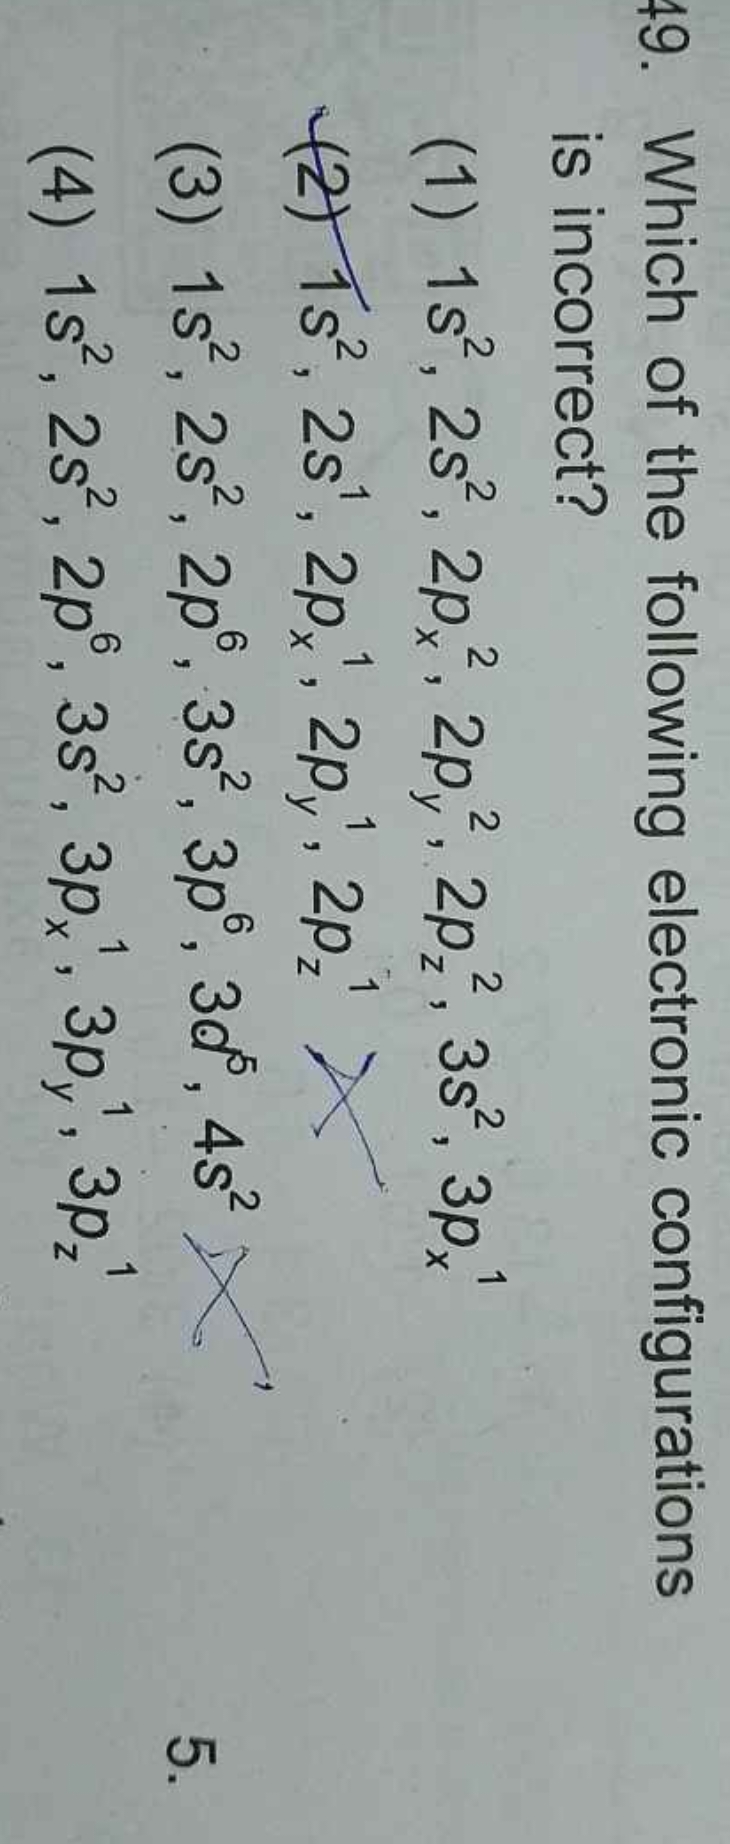 49. Which of the following electronic configurations
is incorrect?
(1) 1s², 2s², 2pₓ², 2p_y², 2p_z², 3s², 3pₓ¹
(2) 1s², 2s¹, 2pₓ¹, 2p_y¹, 2p_z¹
(3) 1s², 2s², 2p⁶, 3s², 3p⁶, 3d⁵, 4s²
(4) 1s², 2s², 2p⁶, 3s², 3pₓ¹, 3p_y¹, 3p_z¹
5.